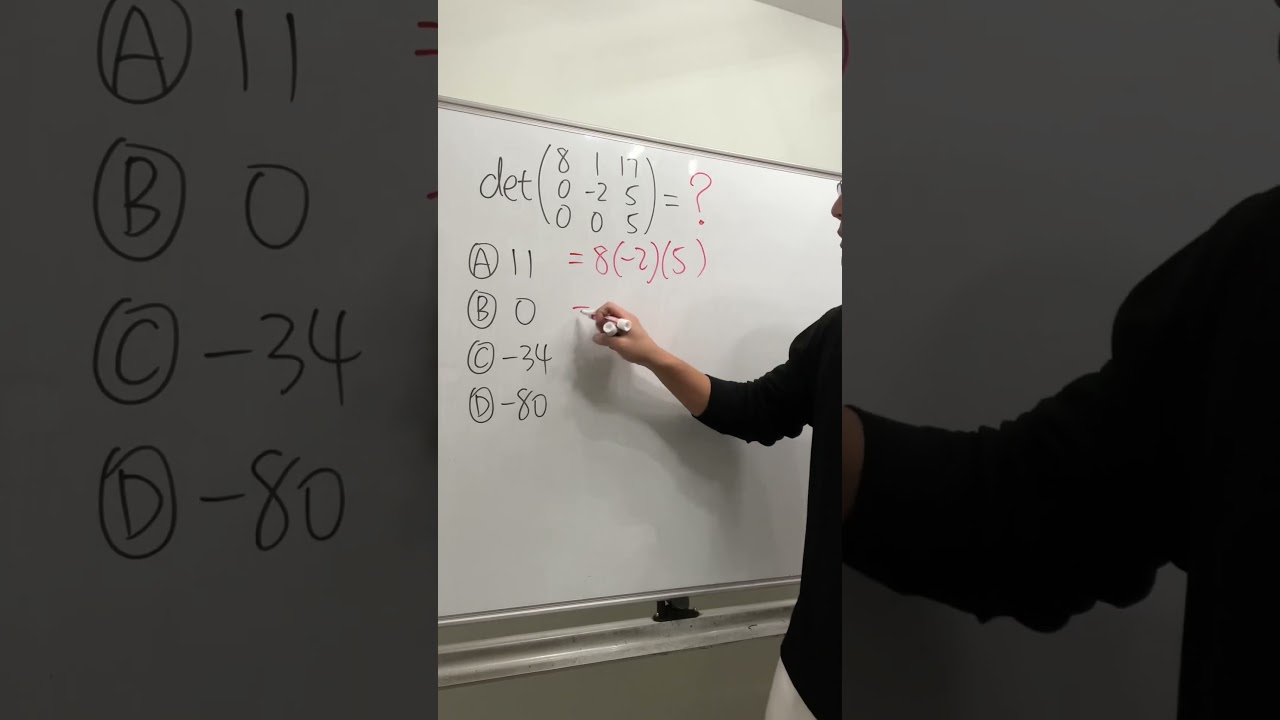 det(8 1 17
0 -2 5
0 0 5) = ?
Ⓐ 11 = 8(-2)(5)
Ⓑ 0 =
Ⓒ -34
Ⓓ -80